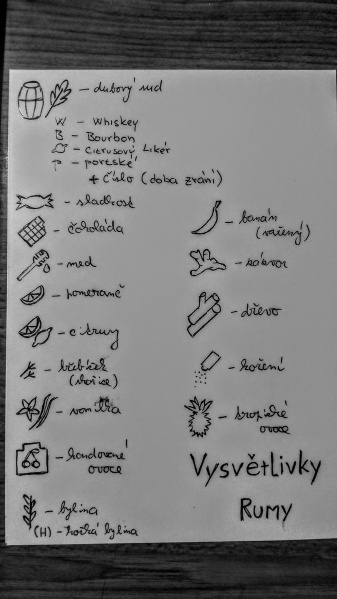 – dubový sud
W – Whiskey
B – Bourbon
– Citrusový Likér
P – portské
+ číslo (doba zrání)
– sladkost
– čokoláda
– med
– pomeranč
– citrusy
– hřebíček
(skořice)
– vanilka
– kandované
ovoce
– bylina
(H) – hořká bylina
– banán
(vařený)
– zázvor
– dřevo
– koření
– tropické
ovoce
Vysvětlivky
Rumy